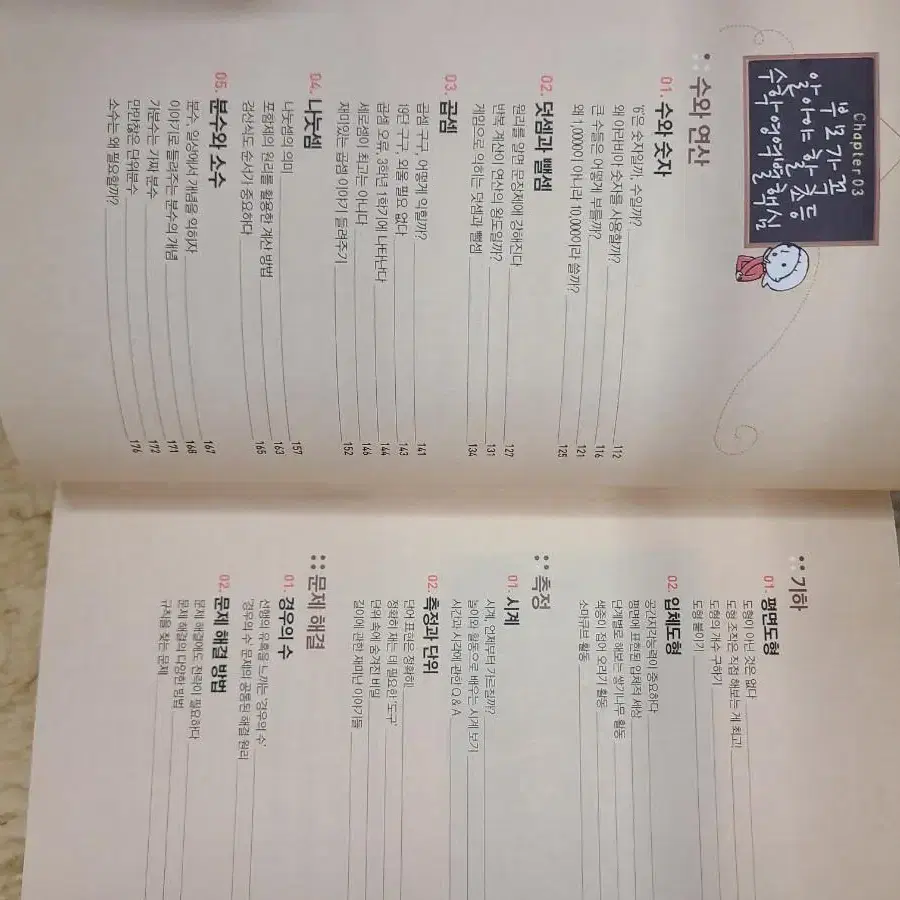 Chapter 03
부모가 꼭
알아야 할 초등
수학 영역별 핵심
수와 연산
01. 수와 숫자
'6'은 숫자일까, 수일까? 112
왜 아라비아 숫자를 사용할까? 116
큰 수들은 어떻게 부를까? 121
왜 1,0000이 아니라 10,000이라 쓸까? 125
02. 덧셈과 뺄셈
원리를 알면 문장제에 강해진다 127
반복 계산이 연산의 왕도일까? 131
게임으로 익히는 덧셈과 뺄셈 134
03. 곱셈
곱셈 구구, 어떻게 익힐까? 141
19단 구구, 외울 필요 없다 143
곱셈 오류, 3학년 1학기에 나타난다 144
세로셈이 최고는 아니다 146
재미있는 곱셈 이야기 들려주기 152
04. 나눗셈
나눗셈의 의미 157
포함제의 원리를 활용한 계산 방법 163
검산식도 순서가 중요하다 165
05. 분수와 소수
분수, 일상에서 개념을 익히자 167
이야기로 들려주는 분수의 개념 168
가분수는 가짜 분수 171
만만찮은 단위분수 172
소수는 왜 필요할까? 176
기하
01. 평면도형
도형이 아닌 것은 없다
도형 조작은 직접 해보는 게 최고!
도형의 개수 구하기
도형 붙이기
02. 입체도형
공간지각능력이 중요하다
평면에 표현된 입체적 세상
단계별로 해보는 쌓기나무 활동
색종이 접어 오리기 활동
소마큐브 활동
측정
01. 시계
시계, 언제부터 가르칠까?
놀이와 활동으로 배우는 시계 보기
시간과 시각에 관한 Q & A
02. 측정과 단위
단어 표현은 정확히!
정확히 재는 데 필요한 '도구'
단위 속에 숨겨진 비밀
길이에 관한 재미난 이야기들
문제 해결
01. 경우의 수
선형의 유혹을 느끼는 '경우의 수'
'경우의 수' 문제의 공통된 해결 원리
02. 문제 해결 방법
문제 해결에도 전략이 필요하다
문제 해결의 다양한 방법
규칙을 찾는 문제